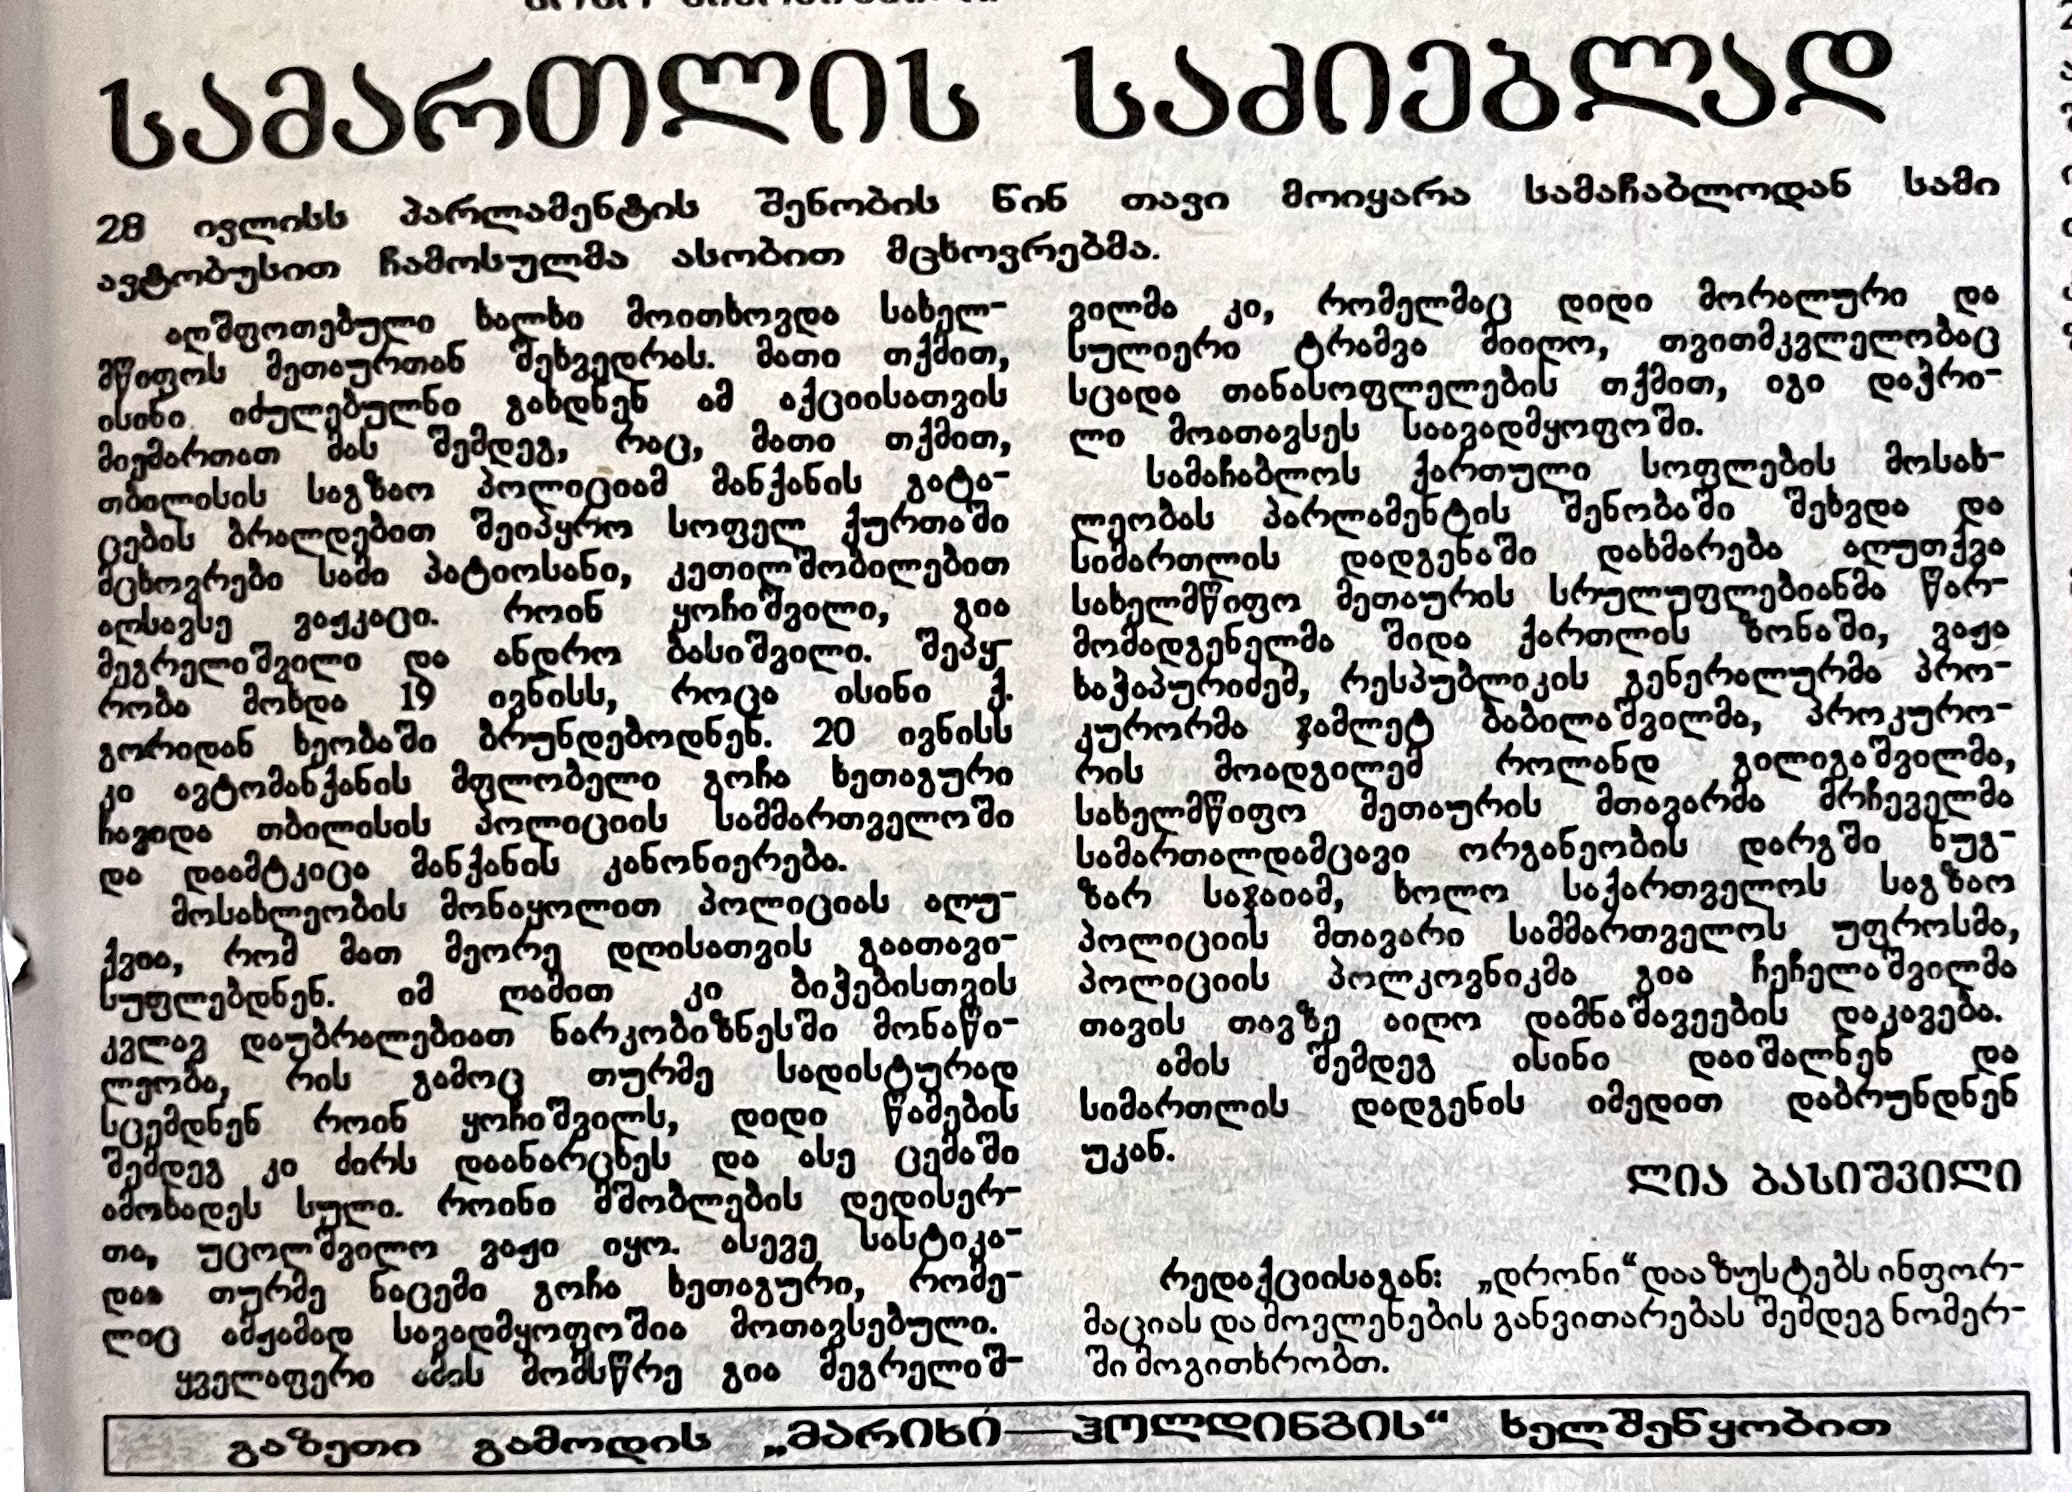 სამართლის საძიებლად
28 ივლისს პარლამენტის შენობის წინ თავი მოიყარა სამაჩაბლოდან სამი
ავტობუსით ჩამოსულმა ასობით მცხოვრებმა.
აღშფოთებული ხალხი მოითხოვდა სახელ-
მწიფოს მეთაურთან შეხვედრას. მათი თქმით,
ისინი იძულებულნი გახდნენ ამ აქციისათვის
მიემართათ მას შემდეგ, რაც, მათი თქმით,
თბილისის საგზაო პოლიციამ მანქანის გატა-
ცების ბრალდებით შეიპყრო სოფელ ქურთაში
მცხოვრები სამი პატიოსანი, კეთილშობილებით
აღსავსე ვაჟკაცი. როინ ყოჩიშვილი, გია
მეგრელიშვილი და ანდრო ბასიშვილი. შეპყ-
რობა მოხდა 19 ივნისს, როცა ისინი ქ.
გორიდან ხეობაში ბრუნდებოდნენ. 20 ივნისს
კი ავტომანქანის მფლობელი გოჩა ხეთაგური
ჩავიდა თბილისის პოლიციის სამმართველოში
და დაამტკიცა მანქანის კანონიერება.
მოსახლეობის მონაყოლით პოლიციას აღუ-
ქვია, რომ მათ მეორე დღისათვის გაათავი-
სუფლებდნენ. იმ ღამით კი ბიჭებისთვის
კვლავ დაუბრალებიათ ნარკობიზნესში მონაწი-
ლეობა, რის გამოც თურმე სადისტურად
სცემდნენ როინ ყოჩიშვილს, დიდი წამების
შემდეგ კი ძირს დაანარცხეს და ასე ცემაში
ამოხადეს სული. როინი მშობლების დედისერ-
თა, უცოლშვილო ვაჟი იყო. ასევე სასტიკა-
დაა თურმე ნაცემი გოჩა ხეთაგური, რომე-
ლიც ამჟამად სავადმყოფოშია მოთავსებული.
ყველაფერი ამის მომსწრე გია მეგრელიშ-
ვილმა კი, რომელმაც დიდი მორალური და
სულიერი ტრამვა მიიღო, თვითმკვლელობაც
სცადა თანასოფლელების თქმით, იგი დაჭრი-
ლი მოათავსეს საავადმყოფოში.
სამაჩაბლოს ქართული სოფლების მოსახ-
ლეობას პარლამენტის შენობაში შეხვდა და
სიმართლის დადგენაში დახმარება აღუთქვა
სახელმწიფო მეთაურის სრულუფლებიანმა წარ-
მომადგენელმა შიდა ქართლის ზონაში, ვაჟა
ხაჭაპურიძემ, რესპუბლიკის გენერალურმა პრო-
კურორმა ჯამლეტ ბაბილაშვილმა, პროკურო-
რის მოადგილემ როლანდ გილიგაშვილმა,
სახელმწიფო მეთაურის მთავარმა მრჩეველმა
სამართალდამცავი ორგანეობის დარგში ნუგ-
ზარ საჯაიამ, ხოლო საქართველოს საგზაო
პოლიციის მთავარი სამმართველოს უფროსმა,
პოლიციის პოლკოვნიკმა გია ჩეჩელაშვილმა
თავის თავზე აიღო დამნაშავეების დაკავება.
ამის შემდეგ ისინი დაიშალნენ და
სიმართლის დადგენის იმედით დაბრუნდნენ
უკან.
ლია ბასიშვილი
რედაქციისაგან: „დრონი“ დააზუსტებს ინფორ-
მაციას და მოვლენების განვითარებას შემდეგ ნომერ-
ში მოგითხრობთ.
გაზეთი გამოდის „მარიხი—ჰოლდინგის“ ხელშეწყობით